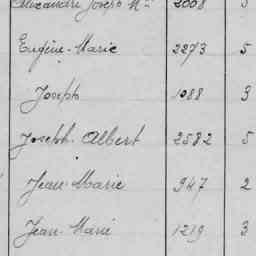 Alexandre Joseph Mie 2008 5
Eugène-Marie 2273 5
Joseph 1088 3
Joseph-Albert 2582 5
Jean-Marie 947 2
Jean-Marie 1219 3